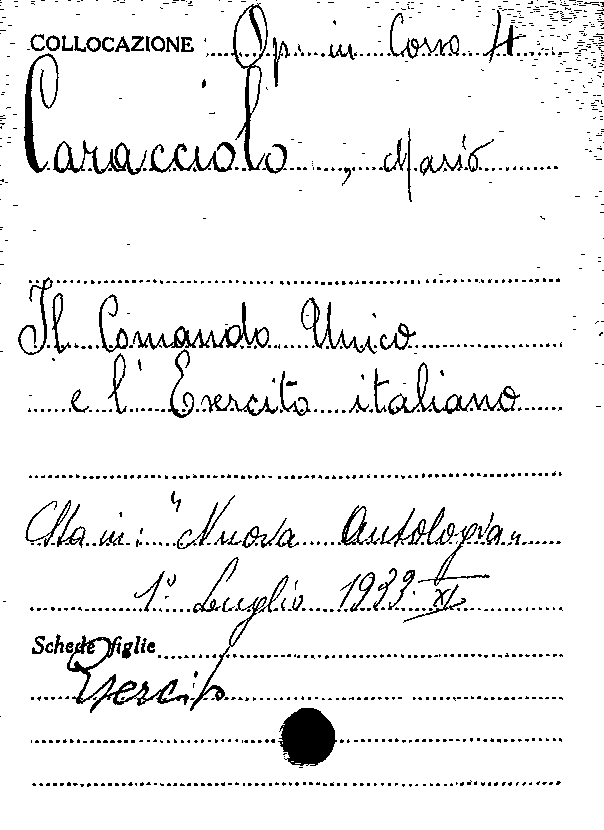 COLLOCAZIONE : Op. in Corso 4
Caracciolo, Mario
Il Comando Unico
e l'Esercito italiano
Sta in: "Nuova Antologia"
1° Luglio 1933. XI
Schede figlie
Esercito